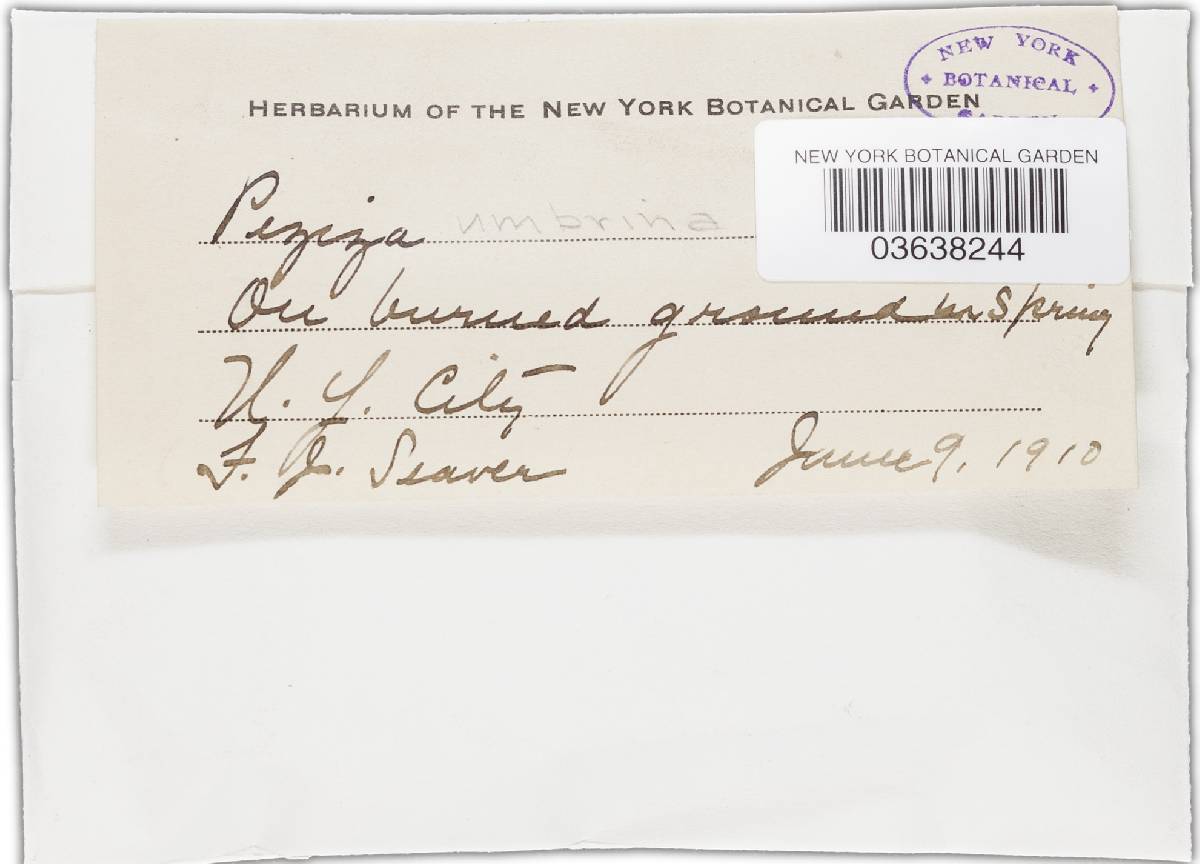 NEW YORK
BOTANICAL
GARDEN
HERBARIUM OF THE NEW YORK BOTANICAL GARDEN
NEW YORK BOTANICAL GARDEN
03638244
Peziza umbrina
On burned ground in Spring
N. Y. City
F. J. Seaver June 9, 1910